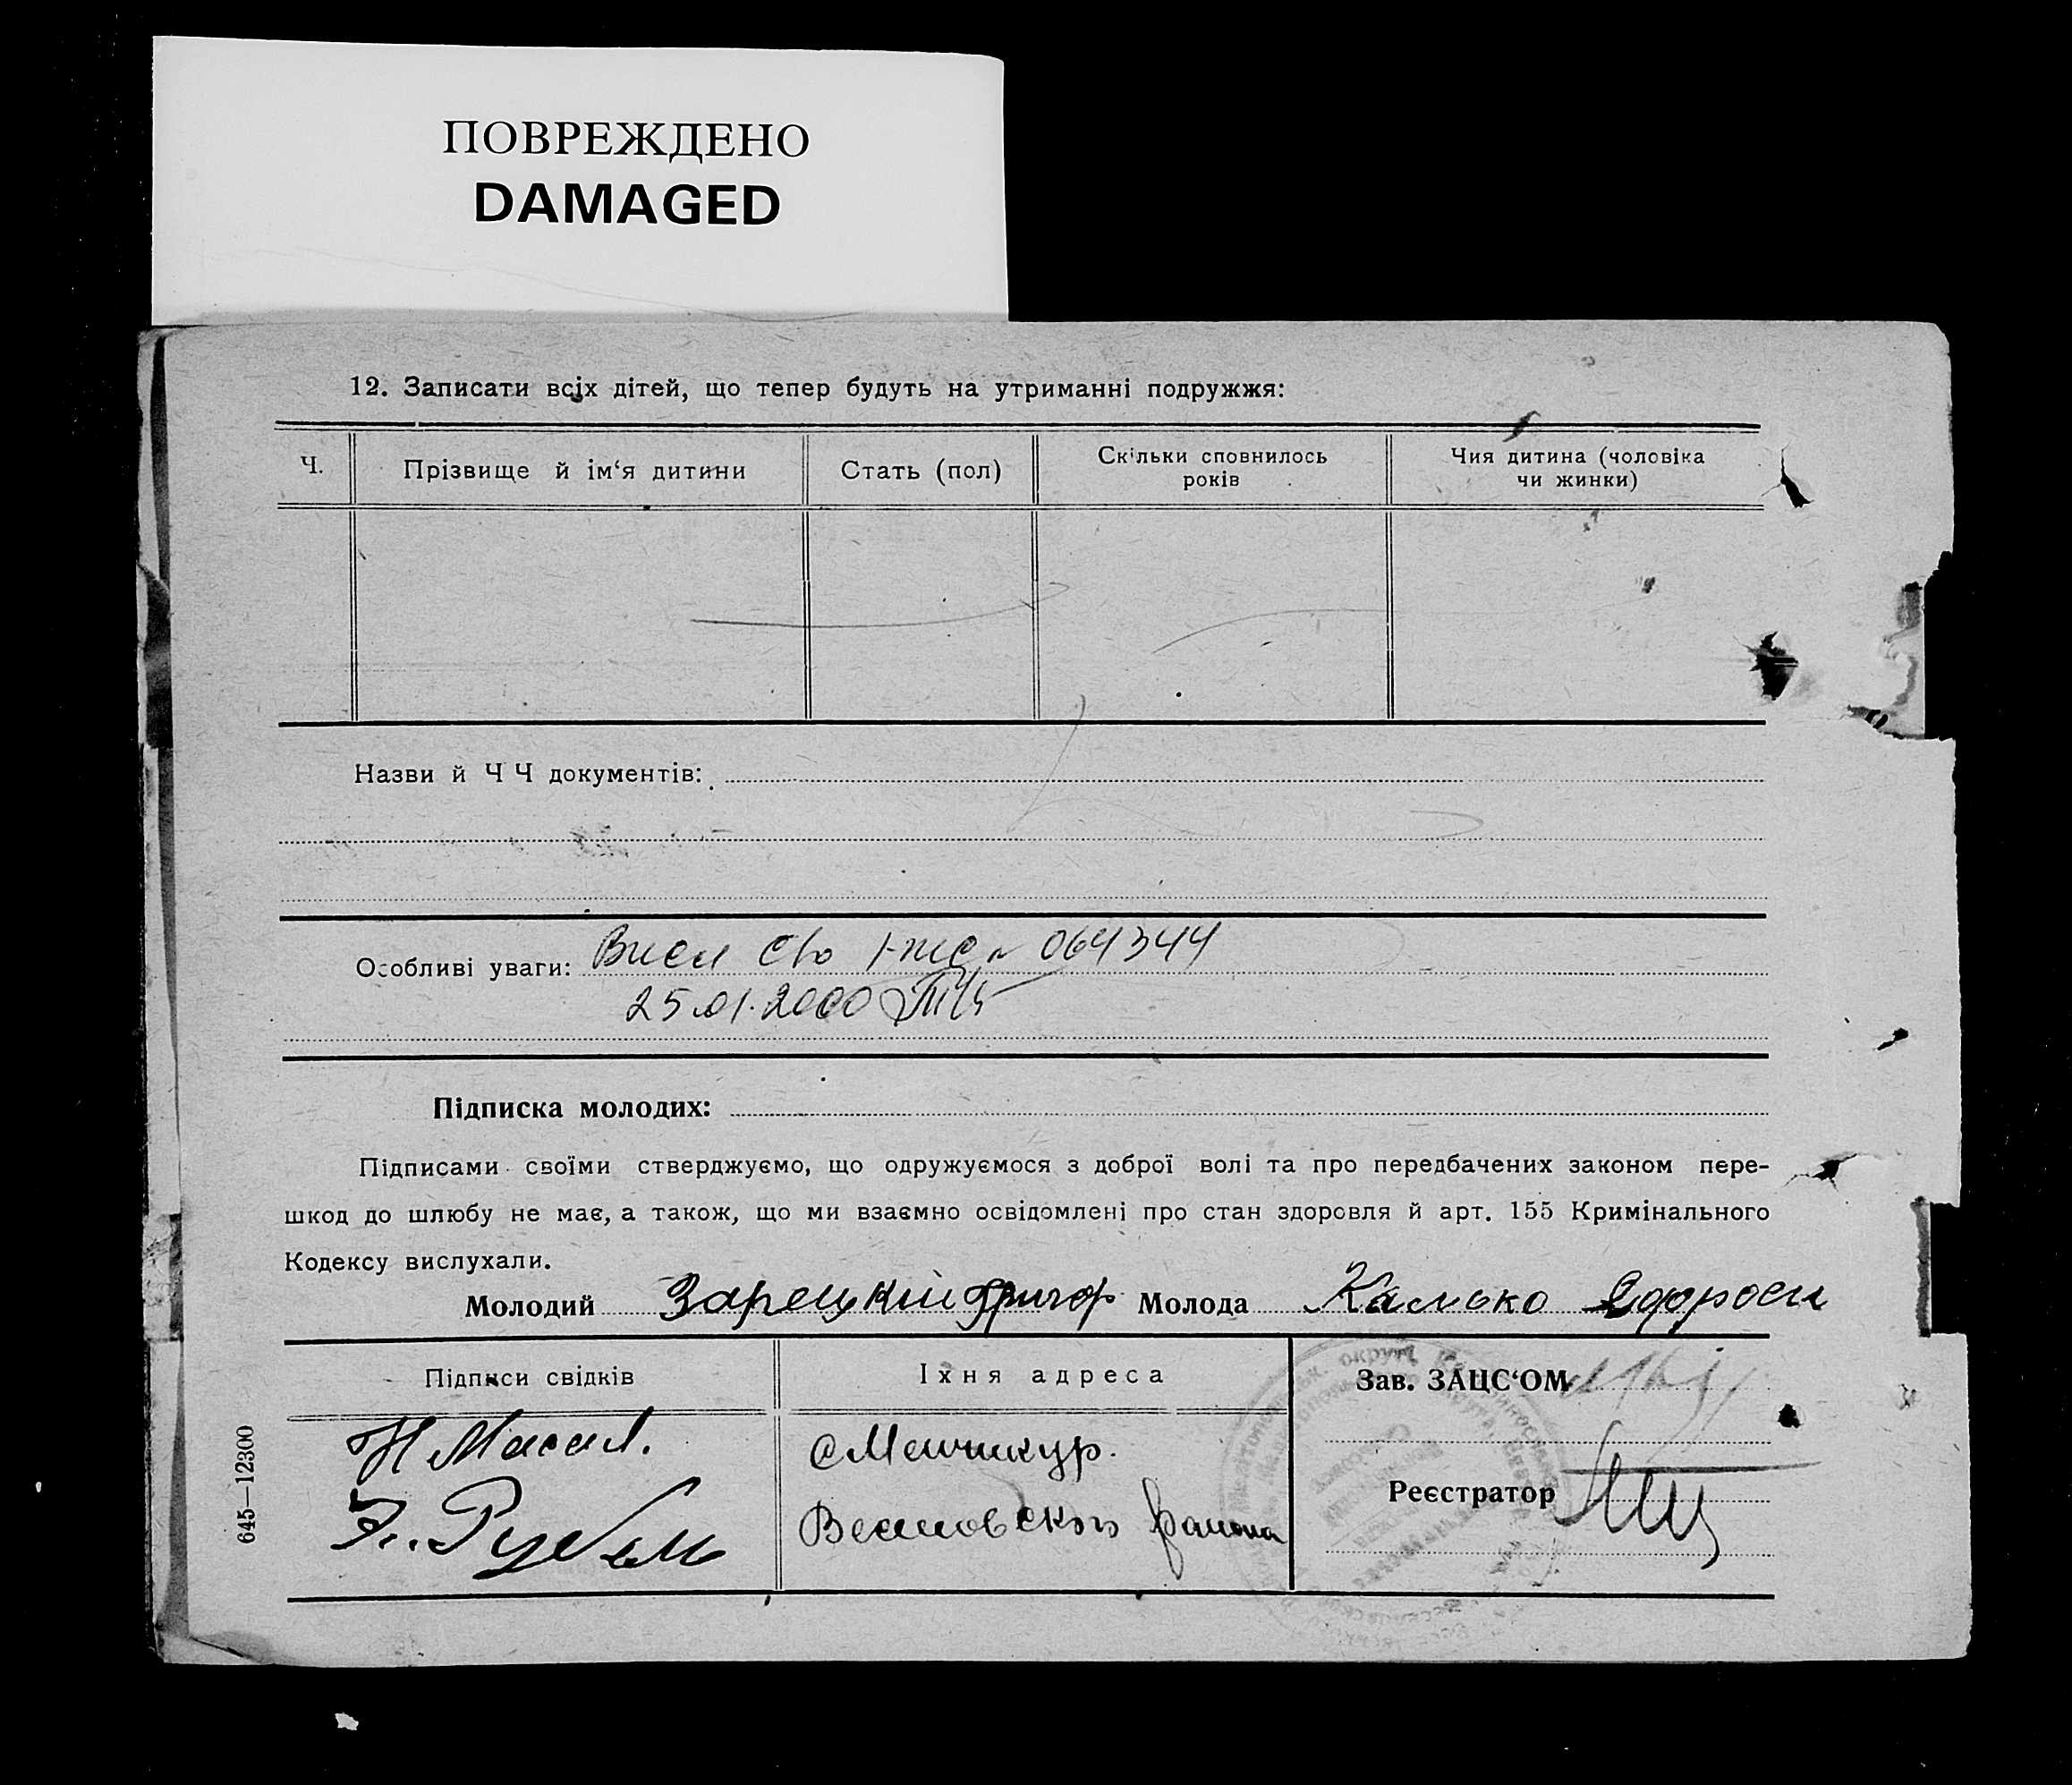 ПОВРЕЖДЕНО
DAMAGED
12. Записати всіх дітей, що тепер будуть на утриманні подружжя:
Ч.
Прізвище й ім‘я дитини
Стать (пол)
Скільки сповнилось
років
Чия дитина (чоловіка
чи жинки)
Назви й Ч Ч документів:
Особливі уваги: 064344
25.01.2000
Підписка молодих:
Підписами своїми стверджуємо, що одружуємося з доброї волі та про передбачених законом пере-
шкод до шлюбу не має, а також, що ми взаємно освідомлені про стан здоровля й арт. 155 Кримінального
Кодексу вислухали.
Молодий Зарецкий Григор Молода Камько
Підписи свідків
Їхня адреса
Зав. ЗАЦС‘ОМ
с Менчикур.
района
Реєстратор
645—12300